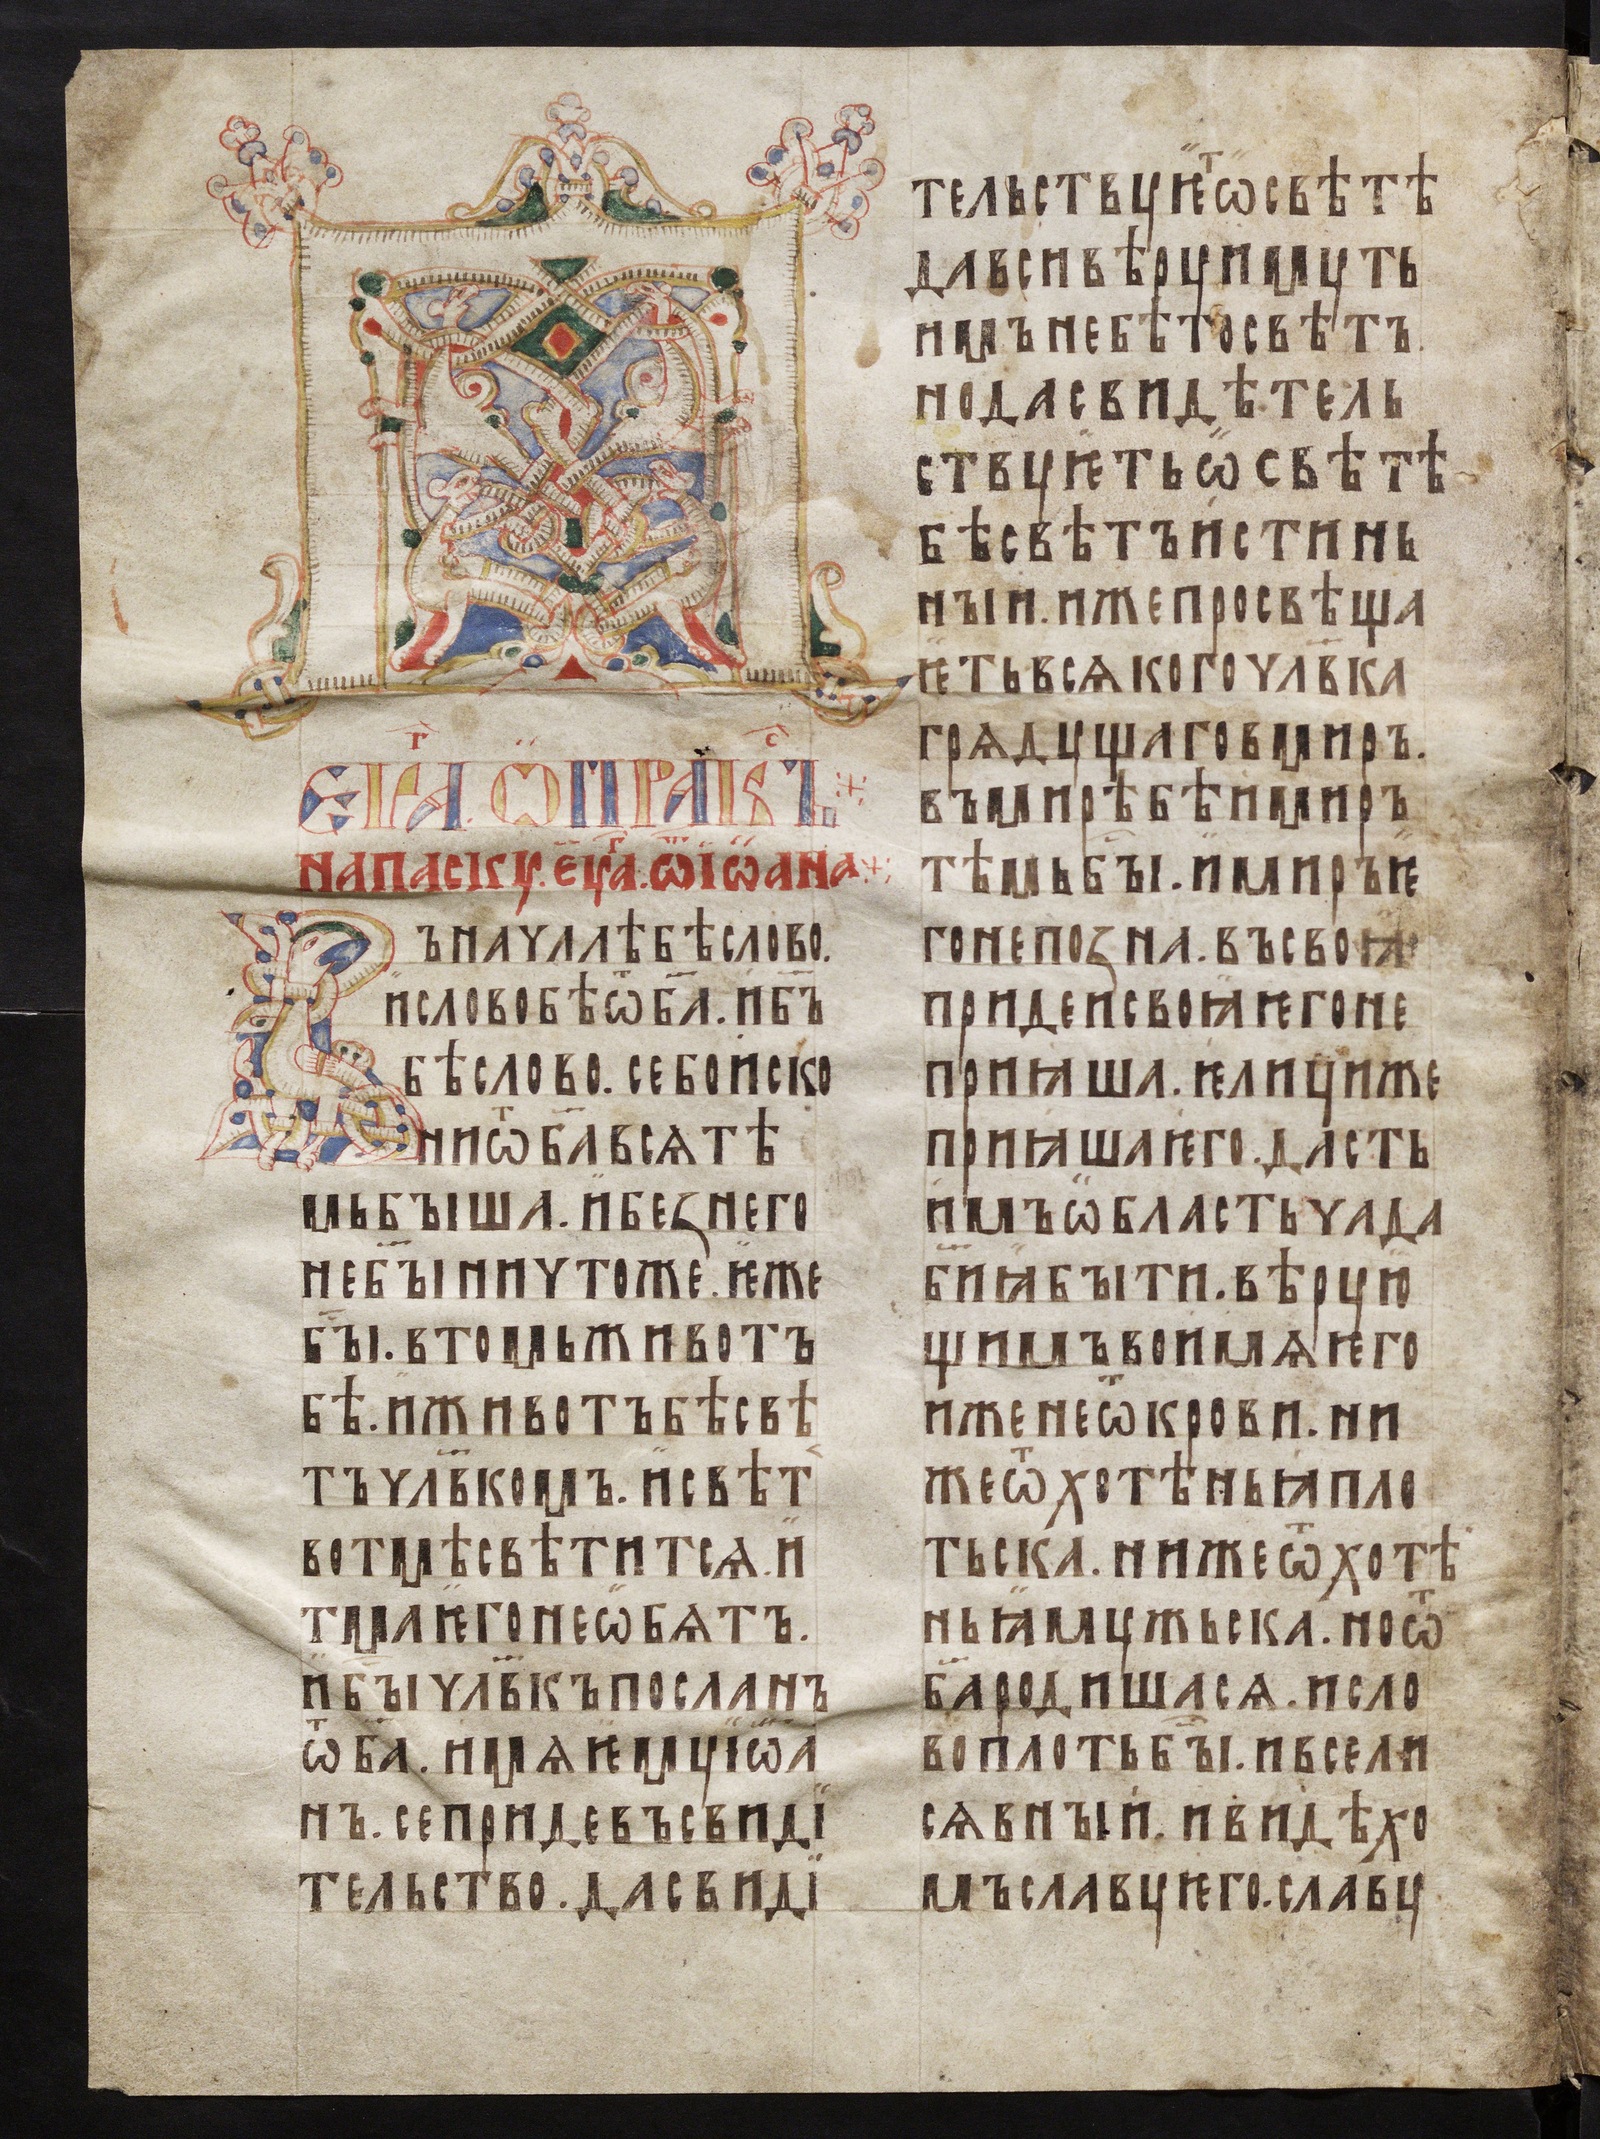 ЄѴⷢ҇А. ѠПРАКⷭ҇Ъ
НАПАСКꙊ. ЄѴⷢ҇А. Ѿ ІѠАНА
ВЪНАЧАЛѢБѢСЛОВО.
ИСЛОВОБѢѾБ҃А. ИБ҃Ъ
БѢСЛОВО. СЕБОИСКО
НИѾБ҃АВСѦТѢ
МЬБЪІША. ИБЕꙀНЕГО
НЕБ҃ЪІНИЧТОЖЕ. ѤЖЕ
Б҃ЪІ. ВТОМЬЖИВОТЪ
БѢ. ИЖИВОТЪБѢСВѢ
ТЪЧЛ҃ВКОМЪ. ИСВѢТ
ВОТМѢСВѢТИТСѦ. И
ТМАѤГОНЕѠБѦТЪ.
ИБ҃ЪІЧЛ҃ВКЪПОСЛАНЪ
ѾБ҃А. ИМѦѤМꙊІѠА
НЪ. СЕПРИДЕВЪСВИДІ
ТЕЛЬСТВО. ДАСВИДІ
ТЕЛЬСТВꙊѤⷮѠСВѢТѢ
ДАВСИВѢРꙊИМꙊТЬ
ИМЪНЕБѢТОСВѢТЪ.
НОДАСВИДѢТЕЛЬ
СТВꙊѤТЬѠСВѢТѢ
БѢСВѢТЪИСТИНЬ
НЪІИ. ИЖЕПРОСВѢЩА
ѤТЬВСѦКОГОЧЛ҃ВКА
ГРѦДꙊЩАГОВМИРЪ.
ВЪМИРѢБѢИМИРЪ
ТѢМЬБ҃ЪІ. ИМИРЪѤ
ГОНЕПОꙀНА. ВЪСВОꙖ
ПРИДЕИСВОꙖѤГОНЕ
ПРИꙖША. ѤЛИЦИЖЕ
ПРИꙖШАѤГО. ДАСТЬ
ИМЪѠБЛАСТЬЧАДА
Б҃ИꙖБЪІТИ. ВѢРꙊЮ
ЩИМЪВОИМѦѤГО
ИЖЕНЕѾКРОВИ. НИ
ЖЕѾХОТѢНЬꙖПЛО
ТЬСКА. НИЖЕѾХОТѢ
НЬꙖМꙊЖЬСКА. НОѾ
Б҃АРОДИШАСѦ. ИСЛО
ВОПЛОТЬБ҃ЪІ. ИВСЕЛИ
СѦВНЪІИ. ИВИДѢХО
МЪСЛАВꙊѤГО. СЛАВꙊ